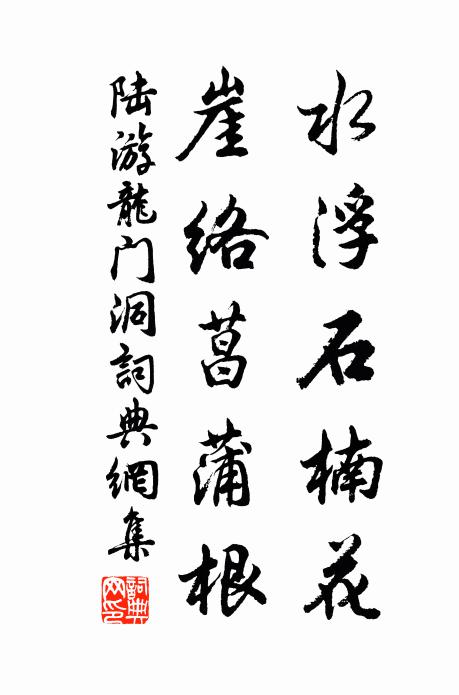 水浮石楠花
崖络菖蒲根
陆游龍门洞詞典網集
詞典網印